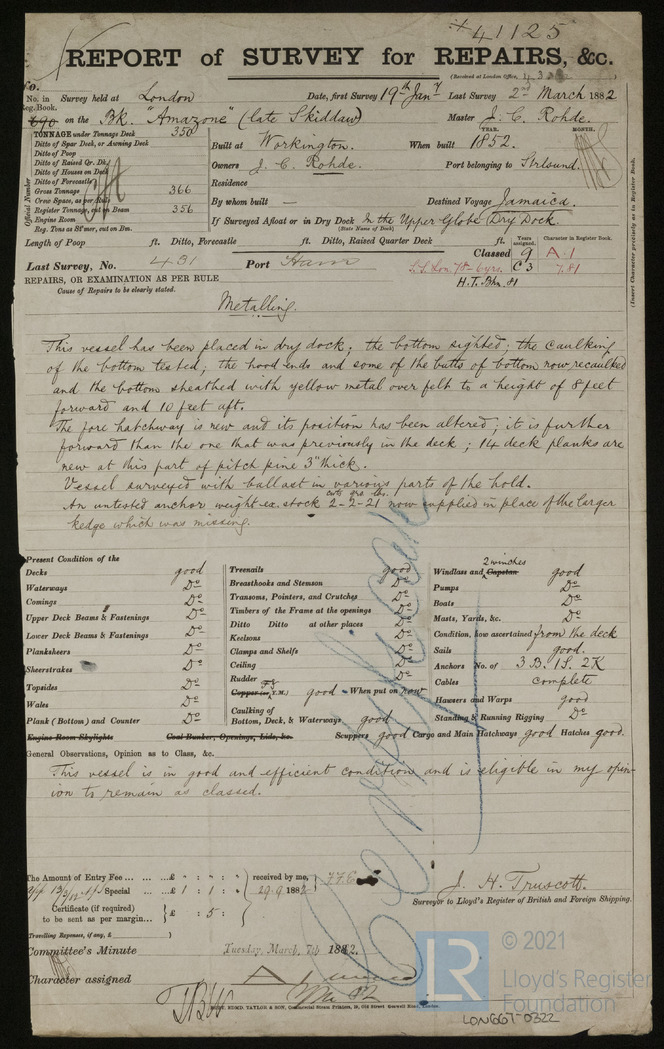 41125
REPORT of SURVEY for REPAIRS, &c.
(Received at London Office,
No.
No. in Reg. Book. Survey held at London Date, first Survey 19th Jany Last Survey 2nd March 1882
690 on the Bk. "Amazone" (late Skiddaw) Master J. C. Rohde.
TONNAGE under Tonnage Deck 350
Ditto of Spar Deck, or Awning Deck
Ditto of Poop
Ditto of Raised Qr. Dk.
Ditto of Houses on Deck
Ditto of Forecastle
Gross Tonnage 366
Crew Space, as per Rule
Register Tonnage, cut on Beam 356
Engine Room
Reg. Tons as St'mer, cut on Bm.
Official Number
Built at Workington. When built YEAR. 1852. MONTH.
Owners J. C. Rohde. Port belonging to Stralsund.
Residence
By whom built — Destined Voyage Jamaica.
If Surveyed Afloat or in Dry Dock In the Upper Globe Dry Dock.
(State Name of Dock)
(Insert Character precisely as in Register Book.
Length of Poop ft. Ditto, Forecastle ft. Ditto, Raised Quarter Deck ft.
Years assigned. Character in Register Book.
Classed 9 A.1
Last Survey, No. 431 Port Ham
S.S. Lon. 78-6yrs. C 3 7.81
H.T. Bhn. 81
REPAIRS, OR EXAMINATION AS PER RULE
Cause of Repairs to be clearly stated.
Metalling.
This vessel has been placed in dry dock; the bottom sighted; the caulking
of the bottom tested; the hood ends and some of the butts of bottom now recaulked
and the bottom sheathed with yellow metal over felt to a height of 8 feet
forward and 10 feet aft.
The fore hatchway is new and its position has been altered; it is further
forward than the one that was previously in the deck; 14 deck planks are
new at this part of pitch pine 3" thick.
Vessel surveyed with ballast in various parts of the hold.
cwts qrs. lbs.
An untested anchor weight ex. stock 2-2-21 now supplied in place of the larger
kedge which was missing.
Present Condition of the
Decks good
Waterways Do
Comings Do
Upper Deck Beams & Fastenings Do
Lower Deck Beams & Fastenings Do
Plansheers Do
Sheerstrakes Do
Topsides Do
Wales Do
Plank (Bottom) and Counter Do
Engine Room Skylights Coal Bunker, Openings, Lids, &c.
Treenails good
Breasthooks and Stemson Do
Transoms, Pointers, and Crutches Do
Timbers of the Frame at the openings Do
Ditto Ditto at other places Do
Keelsons Do
Clamps and Shelfs Do
Ceiling Do
Rudder Do
Copper (or Y.M.) good - When put on now
Caulking of
Bottom, Deck, & Waterways good
Scuppers good Cargo and Main Hatchways good Hatches good.
2 winches
Windlass and Capstan good
Pumps Do
Boats Do
Masts, Yards, &c. Do
Condition, how ascertained from the deck
Sails good.
Anchors No. of 3 B. 1 S. 2 K
Cables complete
Hawsers and Warps good
Standing & Running Rigging Do
General Observations, Opinion as to Class, &c.
This vessel is in good and efficient condition and is eligible in my opin-
ion to remain as classed.
The Amount of Entry Fee £ : : received by me,
Special £ 1 : 1 :
Certificate (if required) to be sent as per margin £ : 5 :
Travelling Expenses, if any, £
J. H. Truscott.
Surveyor to Lloyd's Register of British and Foreign Shipping.
Committee's Minute Tuesday, March, 7th 1882.
Character assigned A 1
LR
© 2021
Lloyd's Register
Foundation
LON667-0322